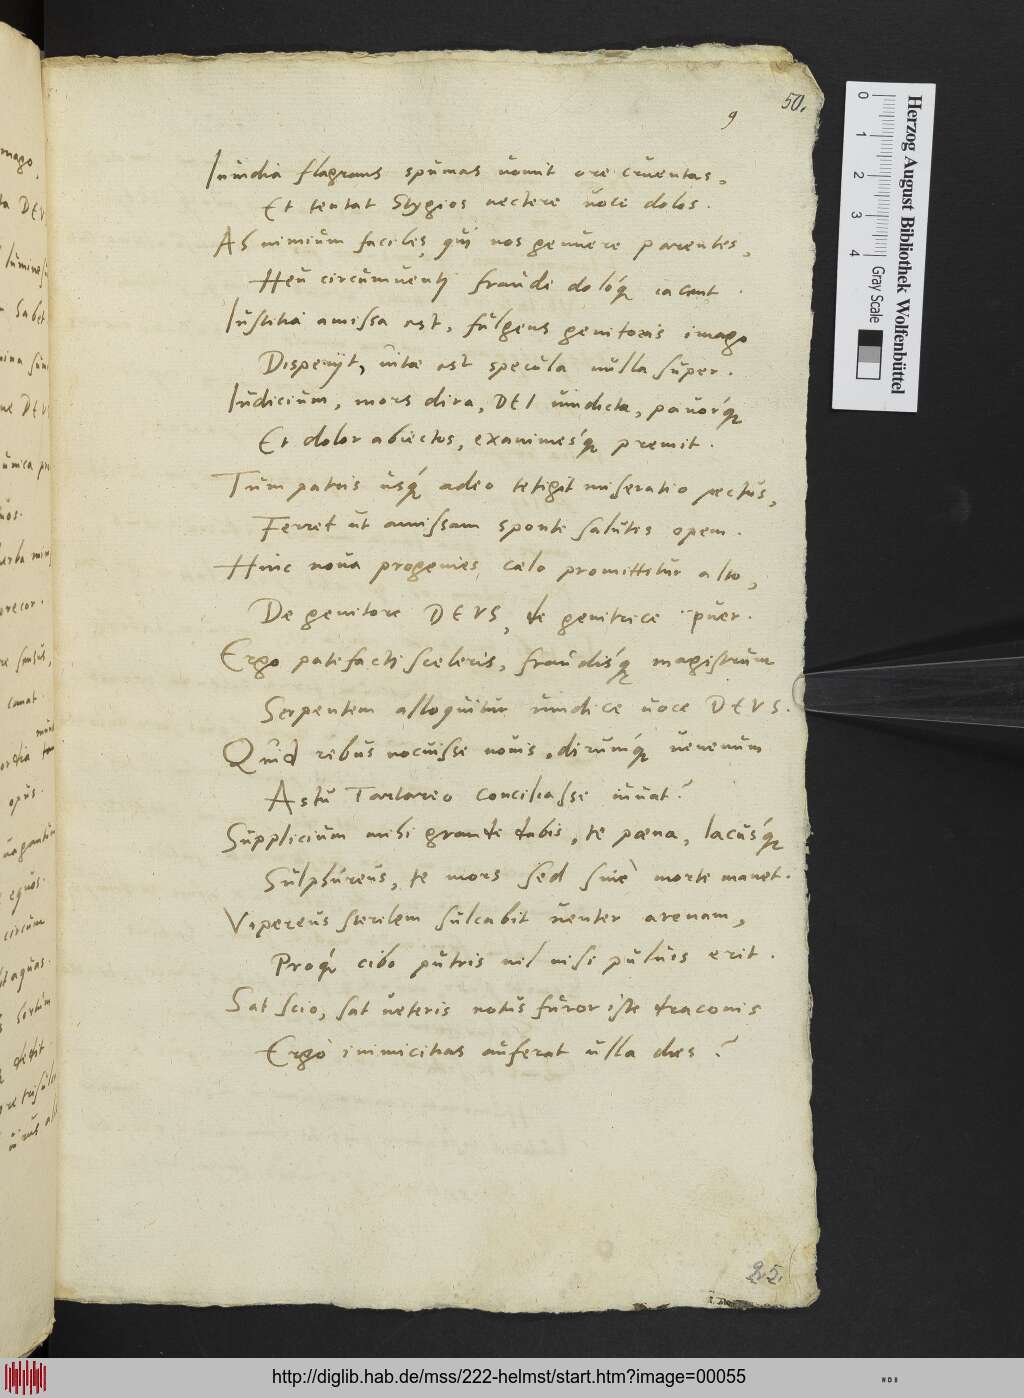 50.
9
Inuidia flagrans spumas uomit ore cruentas,
Et tentat Stygios nectere uoce dolos.
Ah nimium faciles, qui nos genuere parentes,
Heu circumuenti fraude doloq́; iacent.
Iustitia amissa est, fulgens genitoris imago
Disperijt, uitae est specula nulla super.
Iudicium, mors dira, DEI uindicta, pauorq́;
Et dolor abiectos, exanimesq́; premit.
Tum patris usq́; adeo tetigit miseratio pectus,
Ferret ut amissam sponte salutis opem.
Hinc noua progenies, caelo promittitur alto,
De genitore DEVS, de genitrice puer.
Ergo patefacti sceleris, fraudisq́; magistrum
Serpentem alloquitur uindice uoce DEVS.
Quid rebus nocuisse nouis, dirumq́; uenenum
Astu Tartareo conciliasse iuuat?
Supplicium mihi grande dabis, te poena, lacusq́;
Sulphureus, te mors sed sinè morte manet.
Vipereus sterilem sulcabit uenter arenam,
Proq́; cibo putris nil nisi puluis erit.
Sat scio, sat ueteris notus furor iste draconis
Ergò inimicitias auferat ulla dies?
25.
Herzog August Bibliothek Wolfenbüttel
0 1 2 3 4
Gray Scale
http://diglib.hab.de/mss/222-helmst/start.htm?image=00055